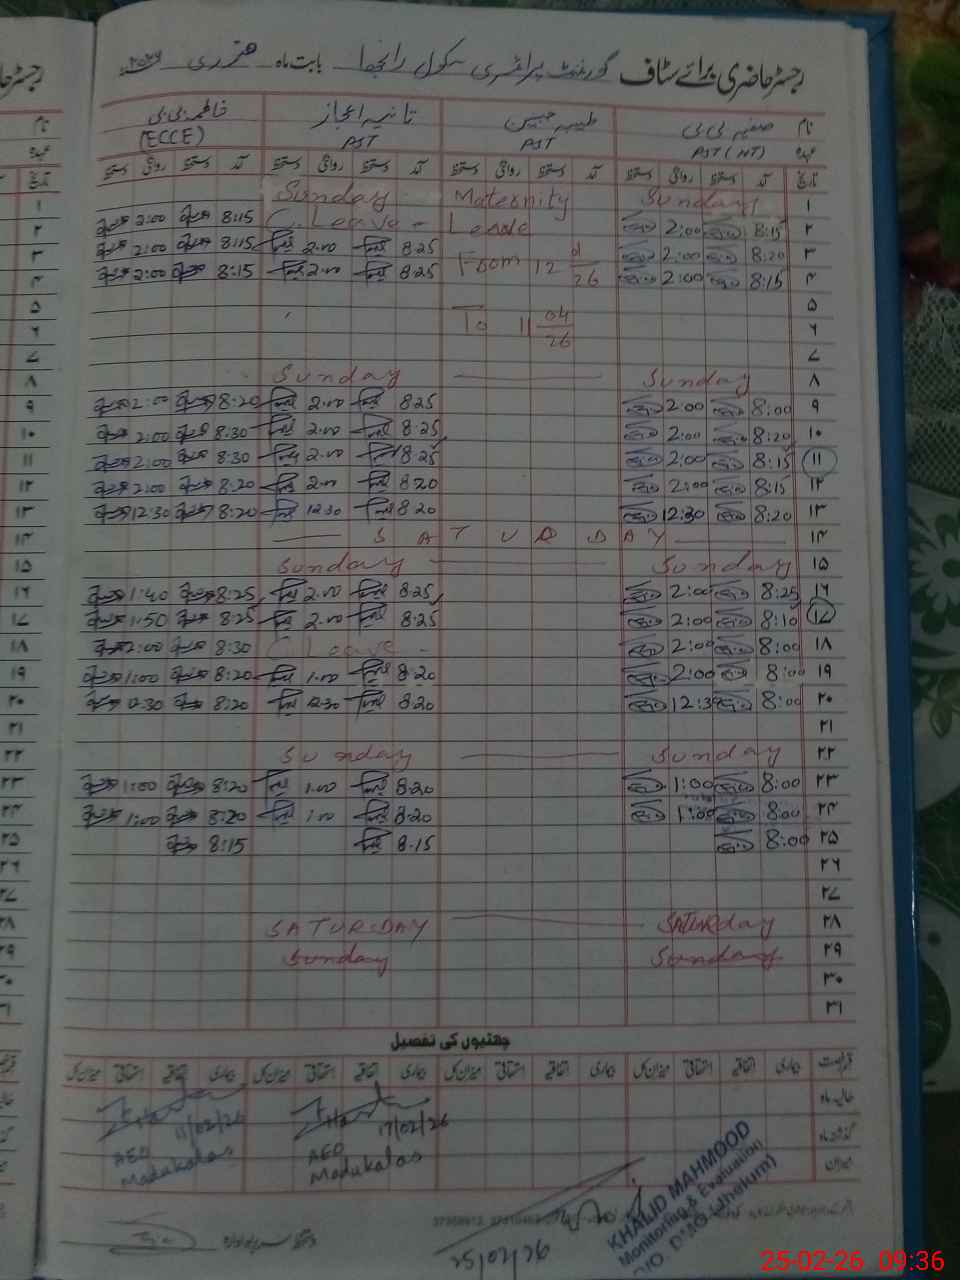 رجسٹر حاضری برائے سٹاف گورنمنٹ پرائمری سکول رانجھا بابت ماہ فروری ۲۰۲۶
نام صفیہ بی بی طیبہ حسین ثانیہ اعجاز فاطمہ بی بی
عہدہ PST (HT) PST PST (ECCE)
تاریخ آمد دستخط روانگی دستخط آمد دستخط روانگی دستخط آمد دستخط روانگی دستخط آمد دستخط روانگی دستخط
۱ Sunday Maternity Sunday
۲ 8:15 2:00 Leave C. Leave - 8:15 2:00
۳ 8:20 2:00 From 12 2/26 8.25 2.00 8:15 2:00
۴ 8:15 2:00 8.25 2.00 8:15 2:00
۵
۶ To 11 04/26
۷
۸ Sunday Sunday
۹ 8:00 2:00 8.25 2.00 8:20 2:00
۱۰ 8:20 2:00 8.25 2.00 8:30 2:00
۱۱ 8:15 2:00 8.25 2.00 8:30 2:00
۱۲ 8:15 2:00 8.20 2.00 8:20 2:00
۱۳ 8:20 12:30 8.20 12.30 8:20 12:30
۱۴ SATURDAY
۱۵ Sunday Sunday
۱۶ 8:25 2:00 8.25 2.00 8:25 1:40
۱۷ 8:10 2:00 8.25 2.00 8:25 1:50
۱۸ 8:00 2:00 C. Leave - 8:30 2:00
۱۹ 8:00 2:00 8.20 1.00 8:20 1:00
۲۰ 8:00 12:30 8.20 12.30 8:20 12:30
۲۱
۲۲ Sunday Sunday
۲۳ 8:00 1:00 8.20 1.00 8:20 1:00
۲۴ 8:00 1:00 8.20 1.00 8:20 1:00
۲۵ 8:00 8.15 8:15
۲۶
۲۷
۲۸ SATURday SATURDAY
۲۹ Sunday Sunday
۳۰
۳۱
چھٹیوں کی تفصیل
میزان کل استحقاقی اتفاقیہ بیماری میزان کل استحقاقی اتفاقیہ بیماری میزان کل استحقاقی اتفاقیہ بیماری میزان کل استحقاقی اتفاقیہ بیماری
11/02/26 17/02/26
AEO AEO
Madukalas Madukalas
KHALID MAHMOOD
Monitoring & Evaluation
O/O. DMO (Jhelum)
25/02/26
25-02-26 09:36